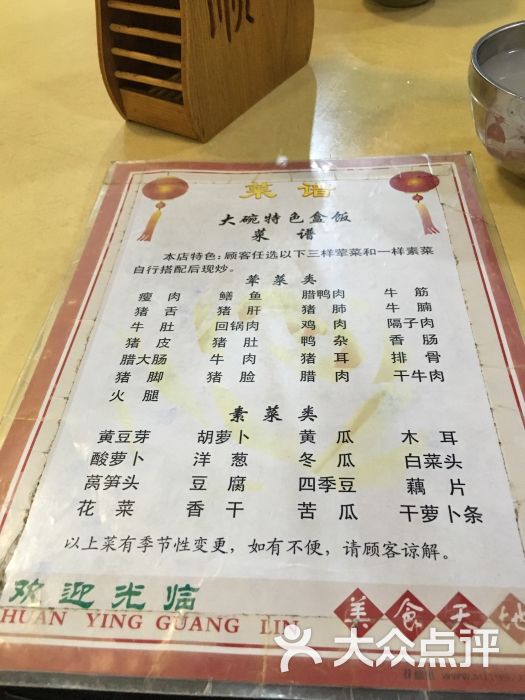 顺
菜谱
大碗特色盒饭
菜谱
本店特色：顾客任选以下三样荤菜和一样素菜
自行搭配后现炒。
荤菜类
瘦肉 鳝鱼 腊鸭肉 牛筋
猪舌 猪肝 猪肺 牛腩
牛肚 回锅肉 鸡肉 隔子肉
猪皮 猪肚 鸭杂 香肠
腊大肠 牛肉 猪耳 排骨
猪脚 猪脸 腊肉 干牛肉
火腿
素菜类
黄豆芽 胡萝卜 黄瓜 木耳
酸萝卜 洋葱 冬瓜 白菜头
莴笋头 豆腐 四季豆 藕片
花菜 香干 苦瓜 干萝卜条
以上菜有季节性变更，如有不便，请顾客谅解。
欢迎光临
HUAN YING GUANG LIN
美食天地
大众点评